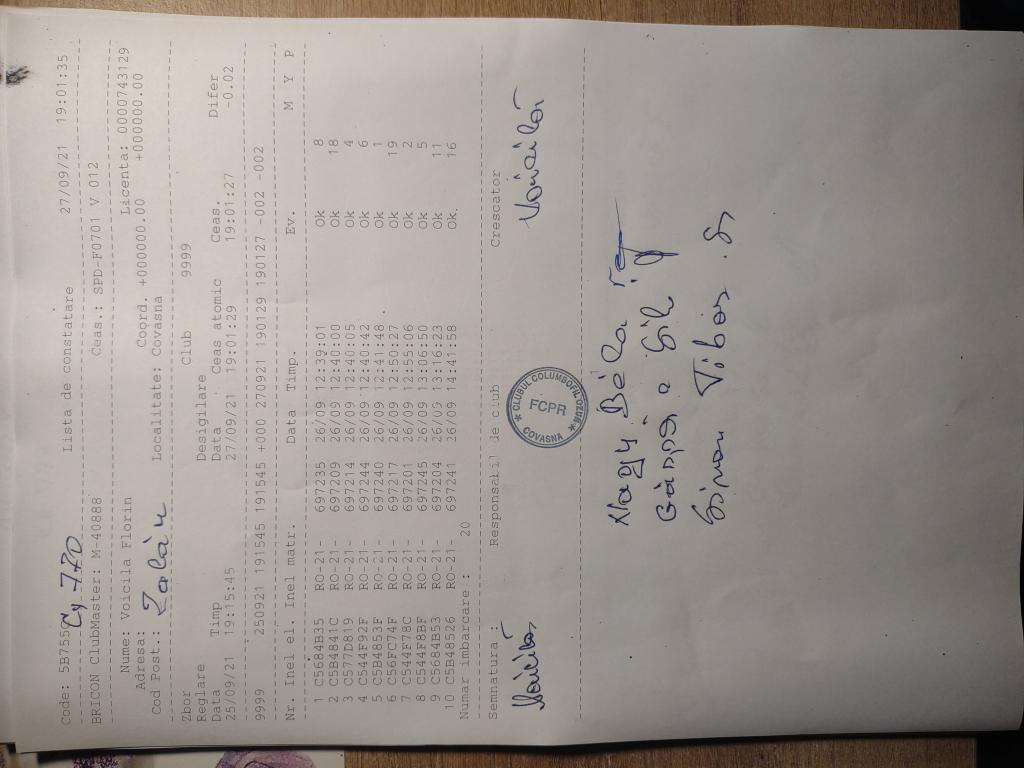 Code: 5B755C Lista de constatare 27/09/21 19:01:35
BRICON ClubMaster: M-40888 Ceas.: SPD-F0701 V 012
Nume: Voicila Florin Licenta: 0000743129
Adresa: Coord. +000000.00 +000000.00
Cod Post.: Zalán Localitate: Covasna
Zbor Club 9999
Reglare Desigilare
Data Timp Data Ceas atomic Ceas. Difer
25/09/21 19:15:45 27/09/21 19:01:29 19:01:27 -0.02
9999 250921 191545 191545 +000 270921 190129 190127 -002 -002
Nr Inel el. Inel matr. Data Timp. Ev. M Y P
1 C5684B35 RO-21- 697235 26/09 12:39:01 Ok 8
2 C5B4841C RO-21- 697209 26/09 12:40:00 Ok 18
3 C577D819 RO-21- 697214 26/09 12:40:05 Ok 4
4 C544F92F RO-21- 697244 26/09 12:40:42 Ok 6
5 C5B4853F RO-21- 697240 26/09 12:41:48 Ok 1
6 C56FC74F RO-21- 697217 26/09 12:50:27 Ok 19
7 C544F78C RO-21- 697201 26/09 12:55:06 Ok 2
8 C544F8BF RO-21- 697245 26/09 13:06:50 Ok 5
9 C5684B53 RO-21- 697204 26/09 13:16:23 Ok 11
10 C5B48526 RO-21- 697241 26/09 14:41:58 Ok. 16
Numar imbarcare : 20
Semnatura : Responsabil de club Crescator
CLUBUL COLUMBOFIL OZUN
FCPR
COVASNA
Nagy Béla
Gáspár
Simon Tibor